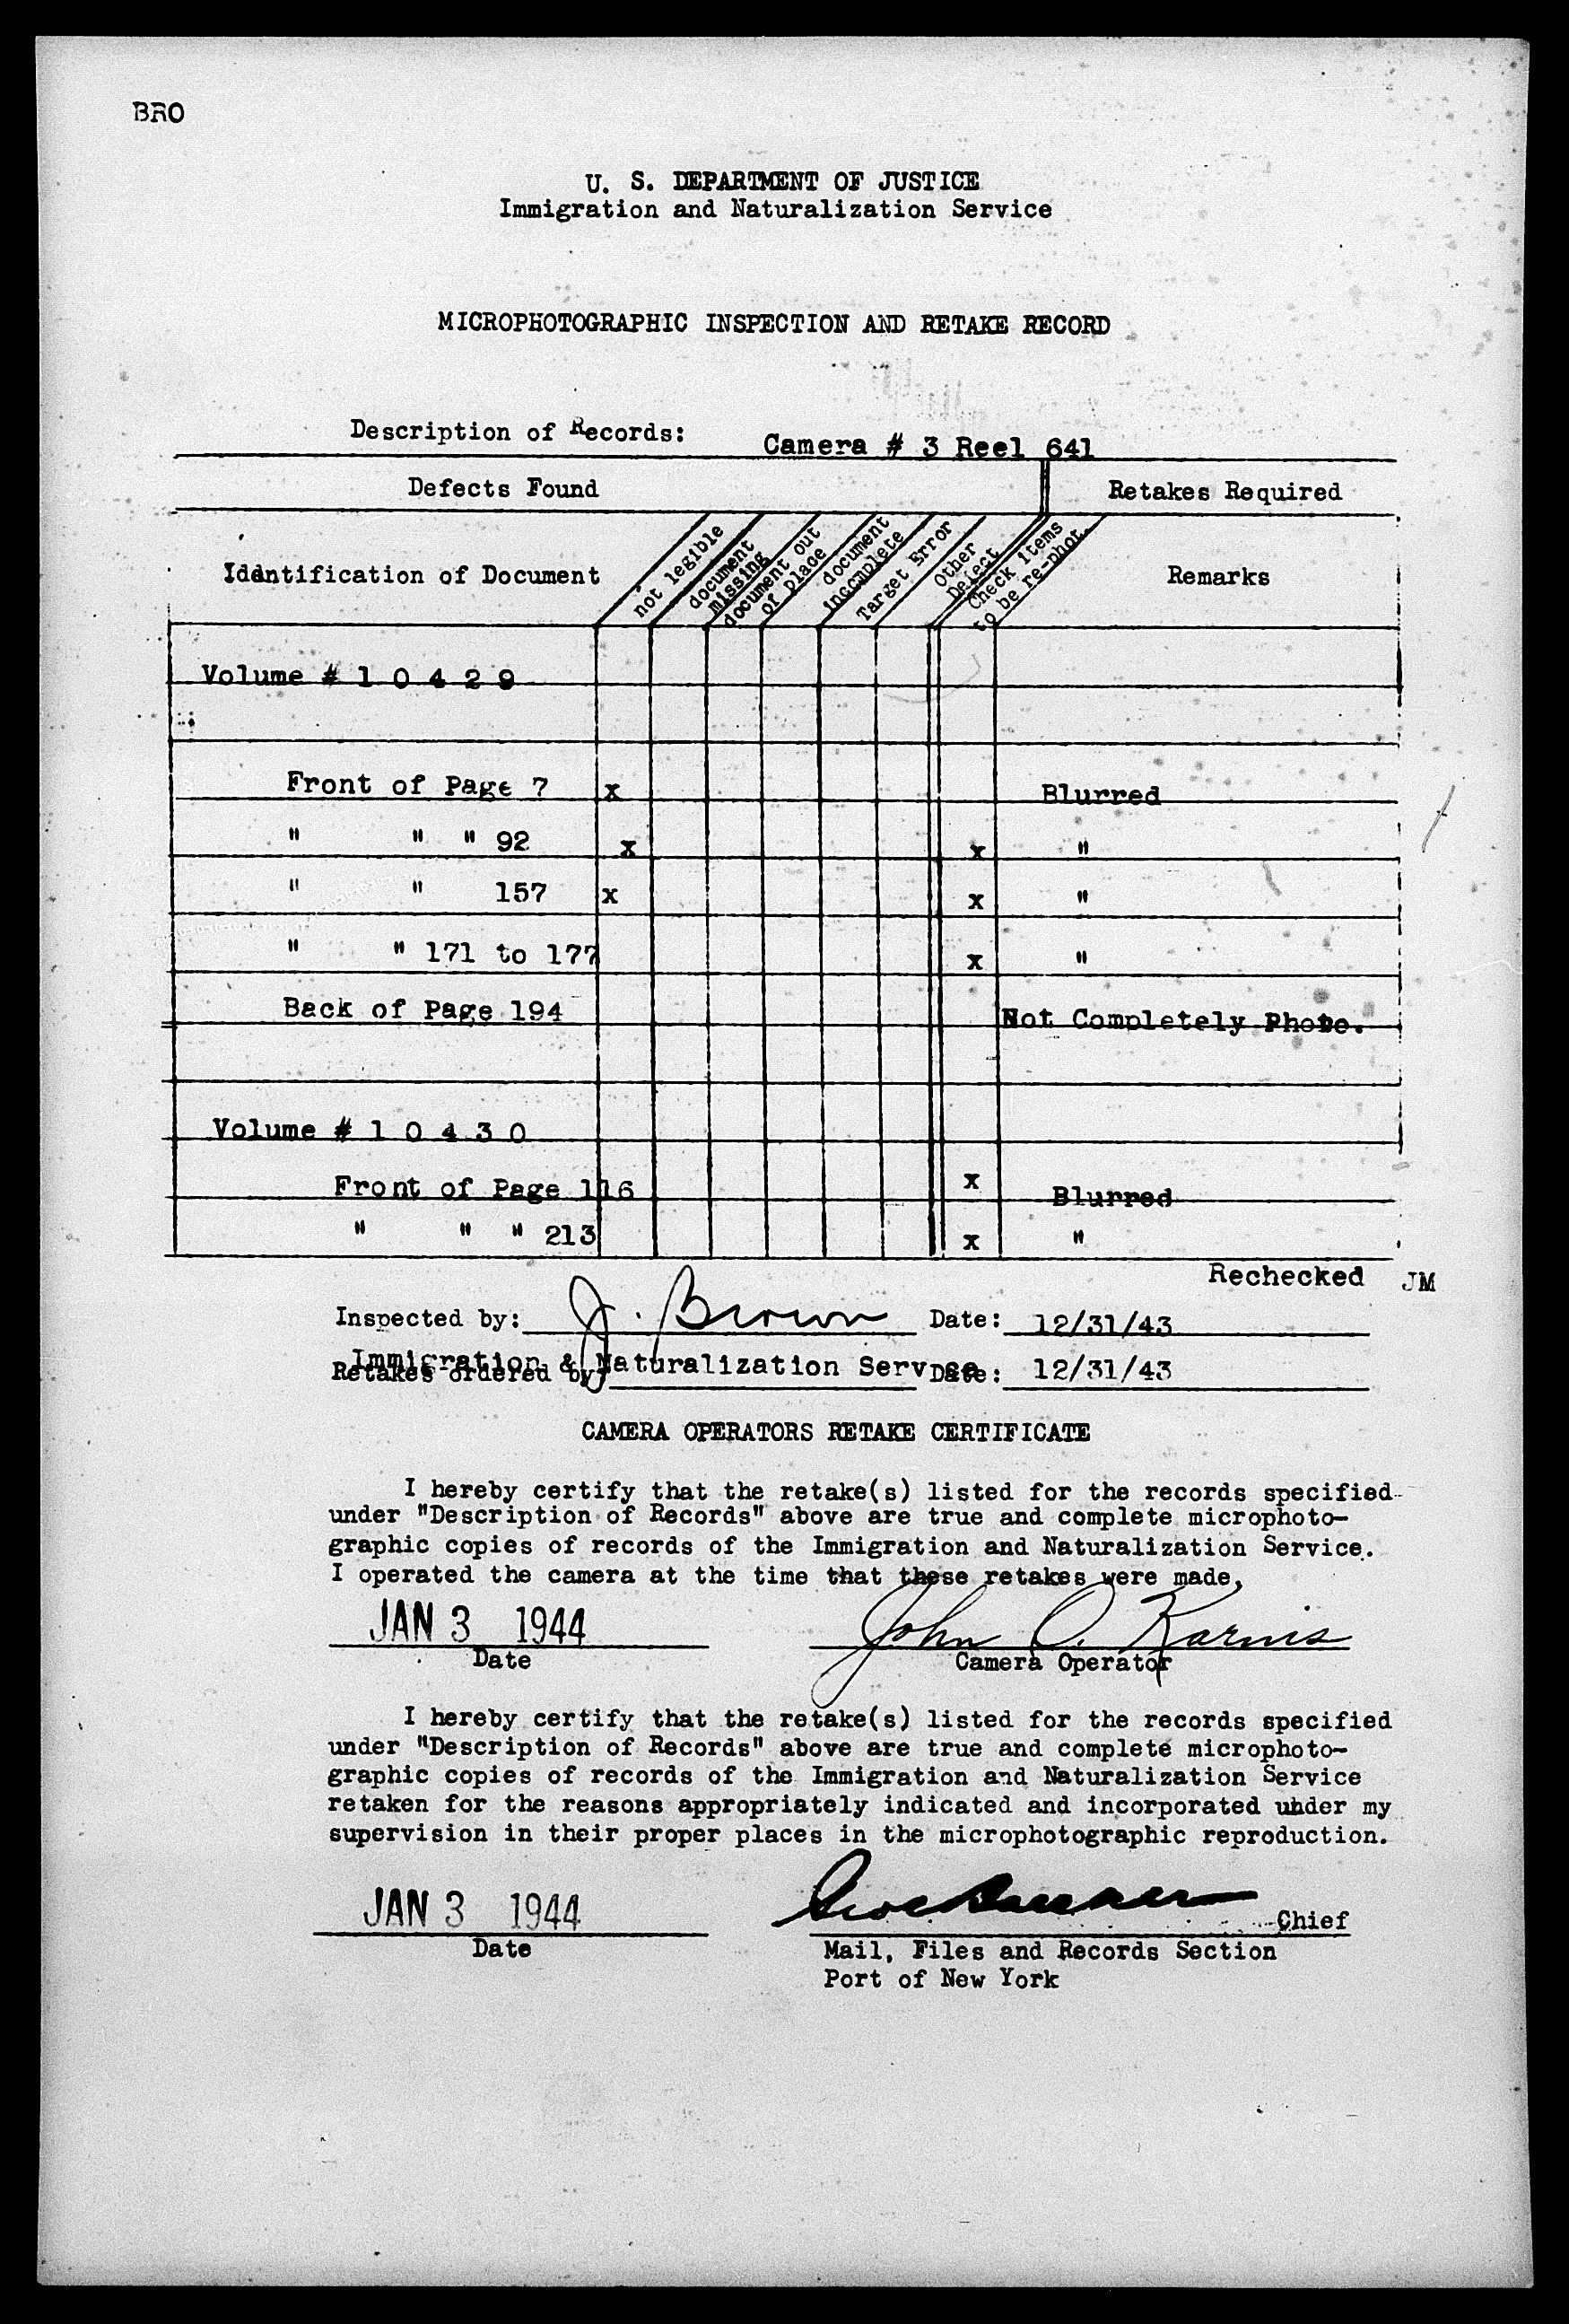 BRO
U. S. DEPARTMENT OF JUSTICE
Immigration and Naturalization Service
MICROPHOTOGRAPHIC INSPECTION AND RETAKE RECORD
Description of Records: Camera # 3 Reel 641
Defects Found Retakes Required
Identification of Document
not legible
document missing
document out of place
document incomplete
Target Error
Other Defect
Check items to be re-phot.
Remarks
Volume # 1 0 4 2 9
Front of Page 7 x Blurred
" " " 92 x x "
" " 157 x x "
" " 171 to 177 x "
Back of Page 194 Not Completely Photo.
Volume # 1 0 4 3 0
Front of Page 116 x Blurred
" " " 213 x "
Rechecked JM
Inspected by: J. Brown Date: 12/31/43
Immigration & Naturalization Service
Retakes ordered by: Date: 12/31/43
CAMERA OPERATORS RETAKE CERTIFICATE
I hereby certify that the retake(s) listed for the records specified
under "Description of Records" above are true and complete microphoto-
graphic copies of records of the Immigration and Naturalization Service.
I operated the camera at the time that these retakes were made.
JAN 3 1944 John O.
Date Camera Operator
I hereby certify that the retake(s) listed for the records specified
under "Description of Records" above are true and complete microphoto-
graphic copies of records of the Immigration and Naturalization Service
retaken for the reasons appropriately indicated and incorporated under my
supervision in their proper places in the microphotographic reproduction.
JAN 3 1944 Chief
Date Mail, Files and Records Section
Port of New York